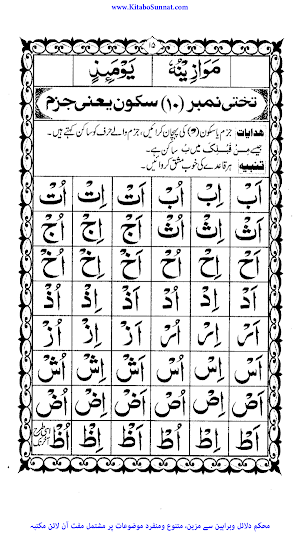 www.KitaboSunnat.com
۱۵
مَوَازِيْنُهٗ يَوْمَئِذٍ
تختی نمبر (۱۰) سکون یعنی جزم
ہدایات: جزم یا سکون (ۡ) کی پہچان کرائیں، جزم والے حرف کو ساکن کہتے ہیں۔
جیسے مِنْ قَبْلِكَ میں ب ساکن ہے۔
تنبیہ: ہر قاعدے کی خوب مشق کروائیں۔
اَبْ اِبْ اُبْ اَتْ اِتْ اُتْ
اَثْ اِثْ اُثْ اَجْ اِجْ اُجْ
اَحْ اِحْ اُحْ اَخْ اِخْ اُخْ
اَدْ اِدْ اُدْ اَذْ اِذْ اُذْ
اَرْ اِرْ اُرْ اَزْ اِزْ اُزْ
اَسْ اِسْ اُسْ اَشْ اِشْ اُشْ
اَصْ اِصْ اُصْ اَضْ اِضْ اُضْ
اَطْ اِطْ اُطْ اَظْ اِظْ اُظْ
محکم دلائل وبراہین سے مزین، متنوع ومنفرد موضوعات پر مشتمل مفت آن لائن مکتبہ